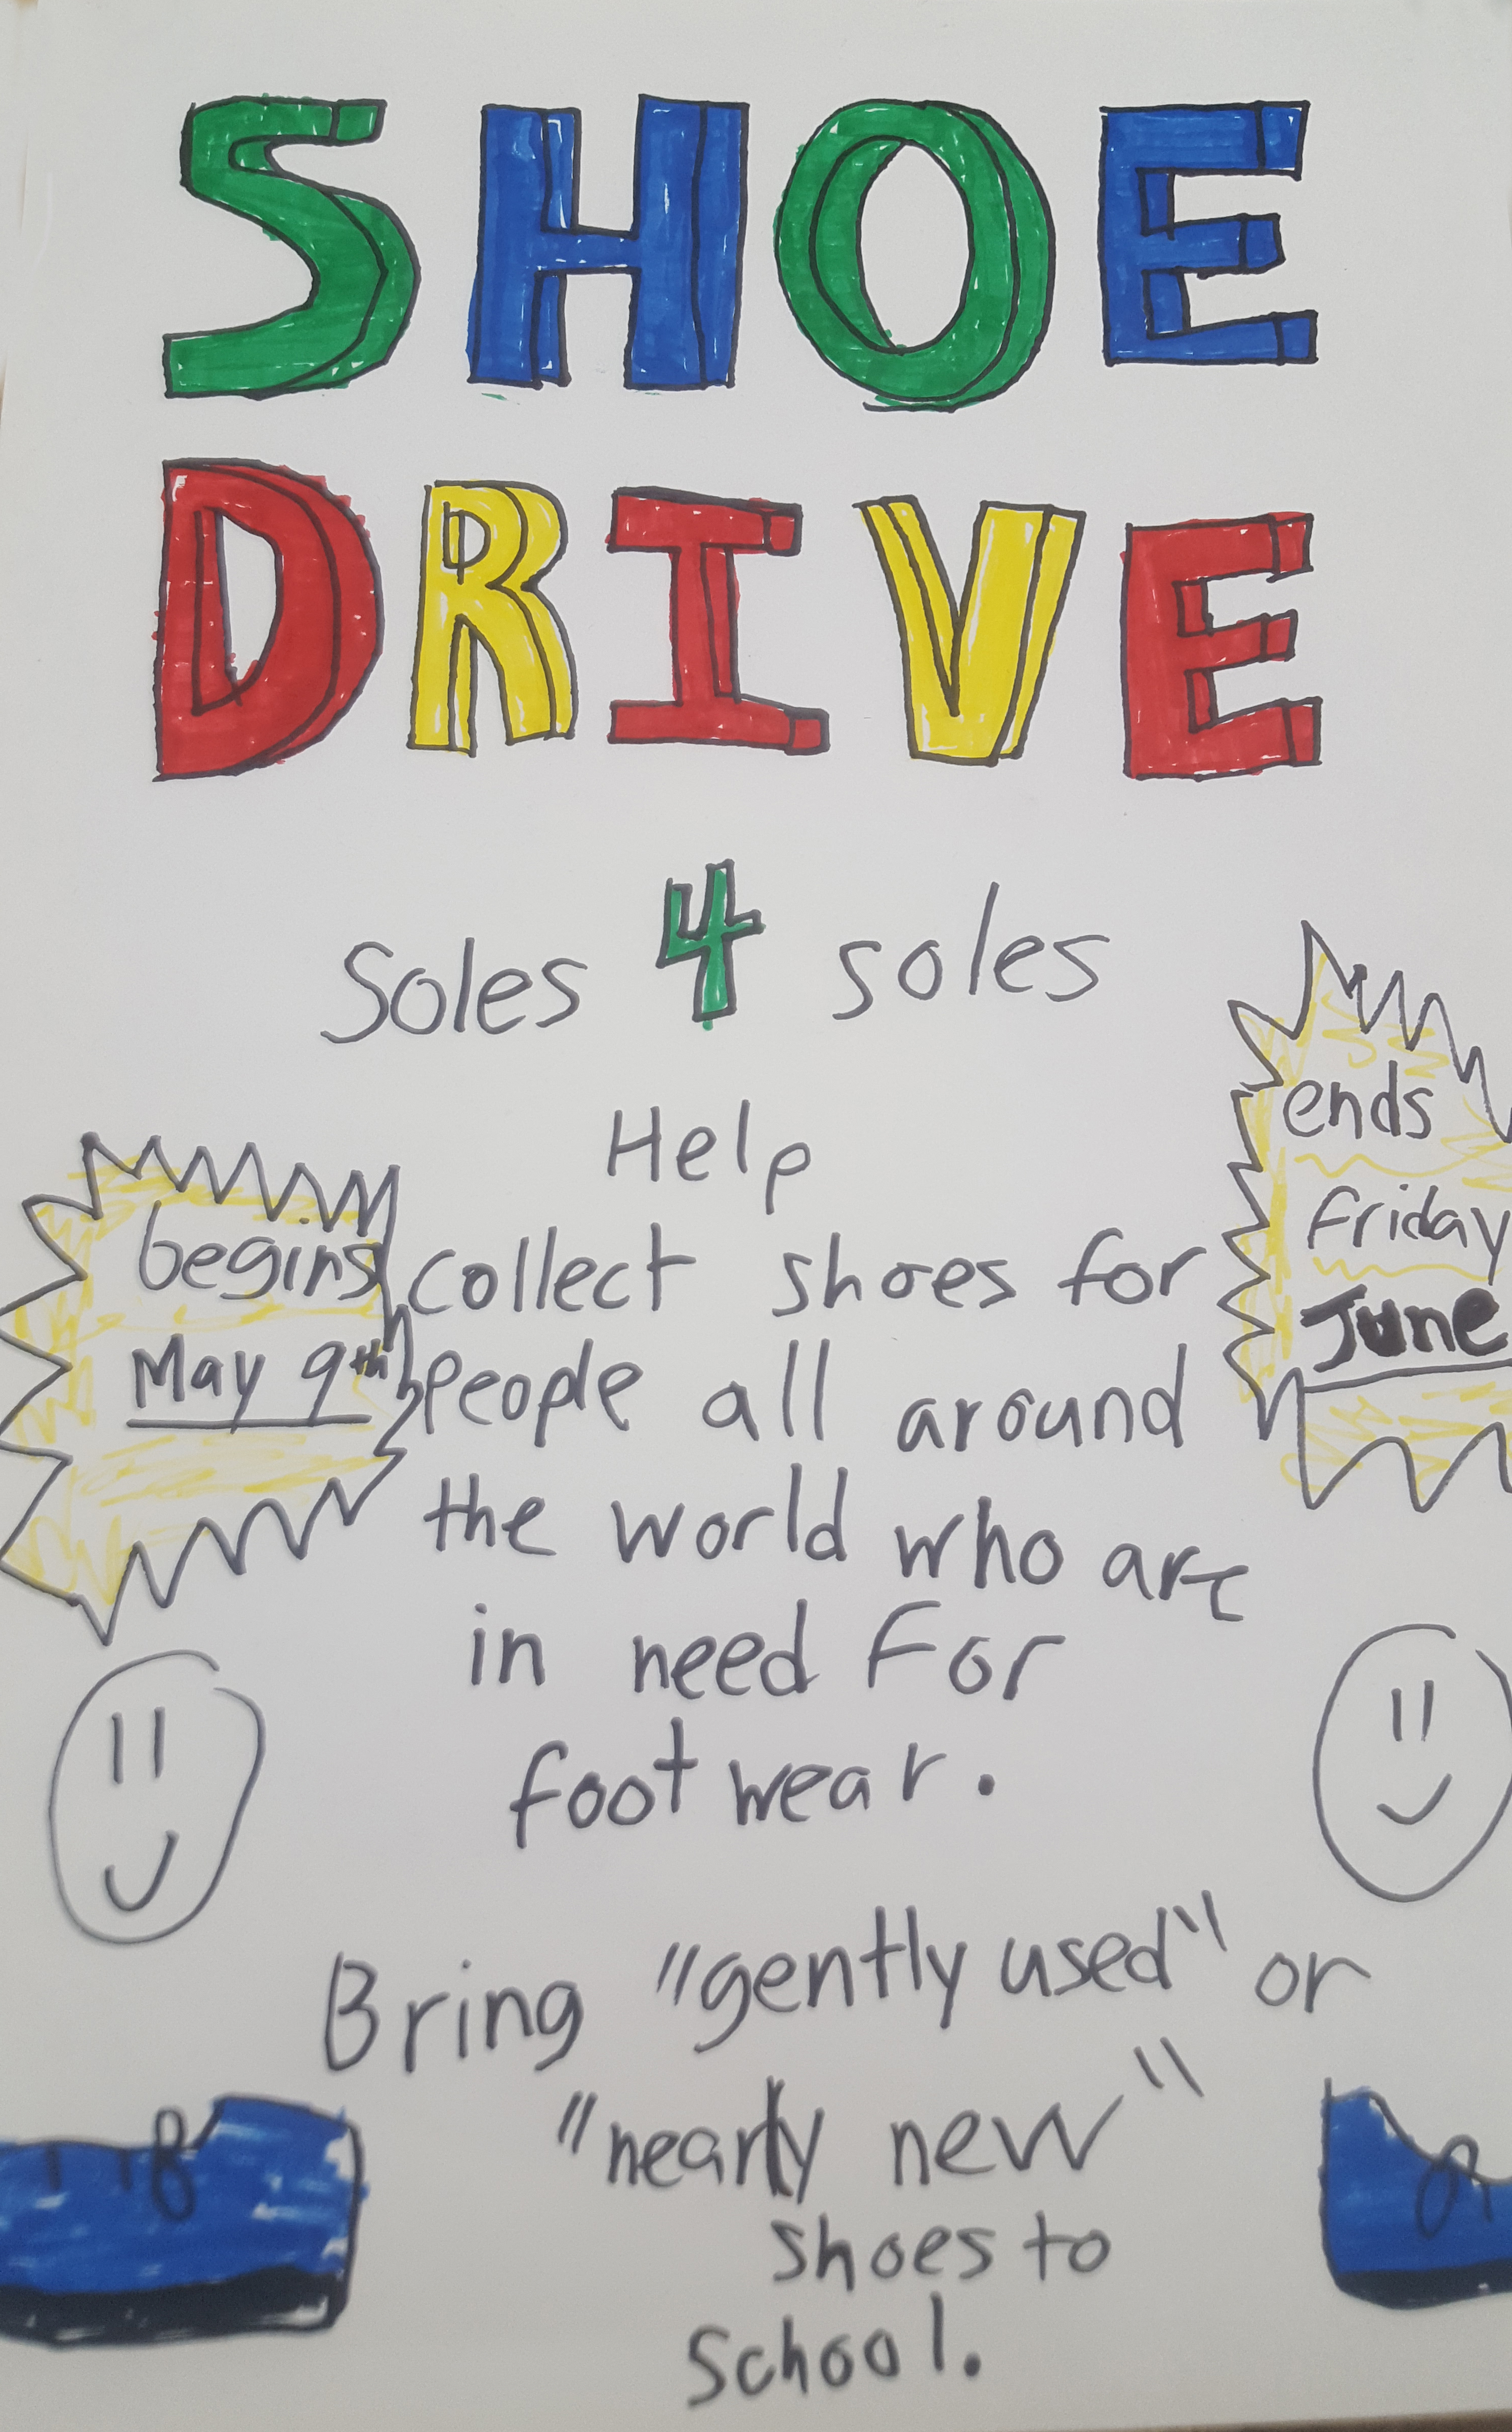 SHOE
DRIVE
Soles 4 soles
Help
collect shoes for
people all around
the world who are
in need For
foot wear.
begins
May 9th
ends
friday
June
Bring "gently used" or
"nearly new"
shoes to
School.